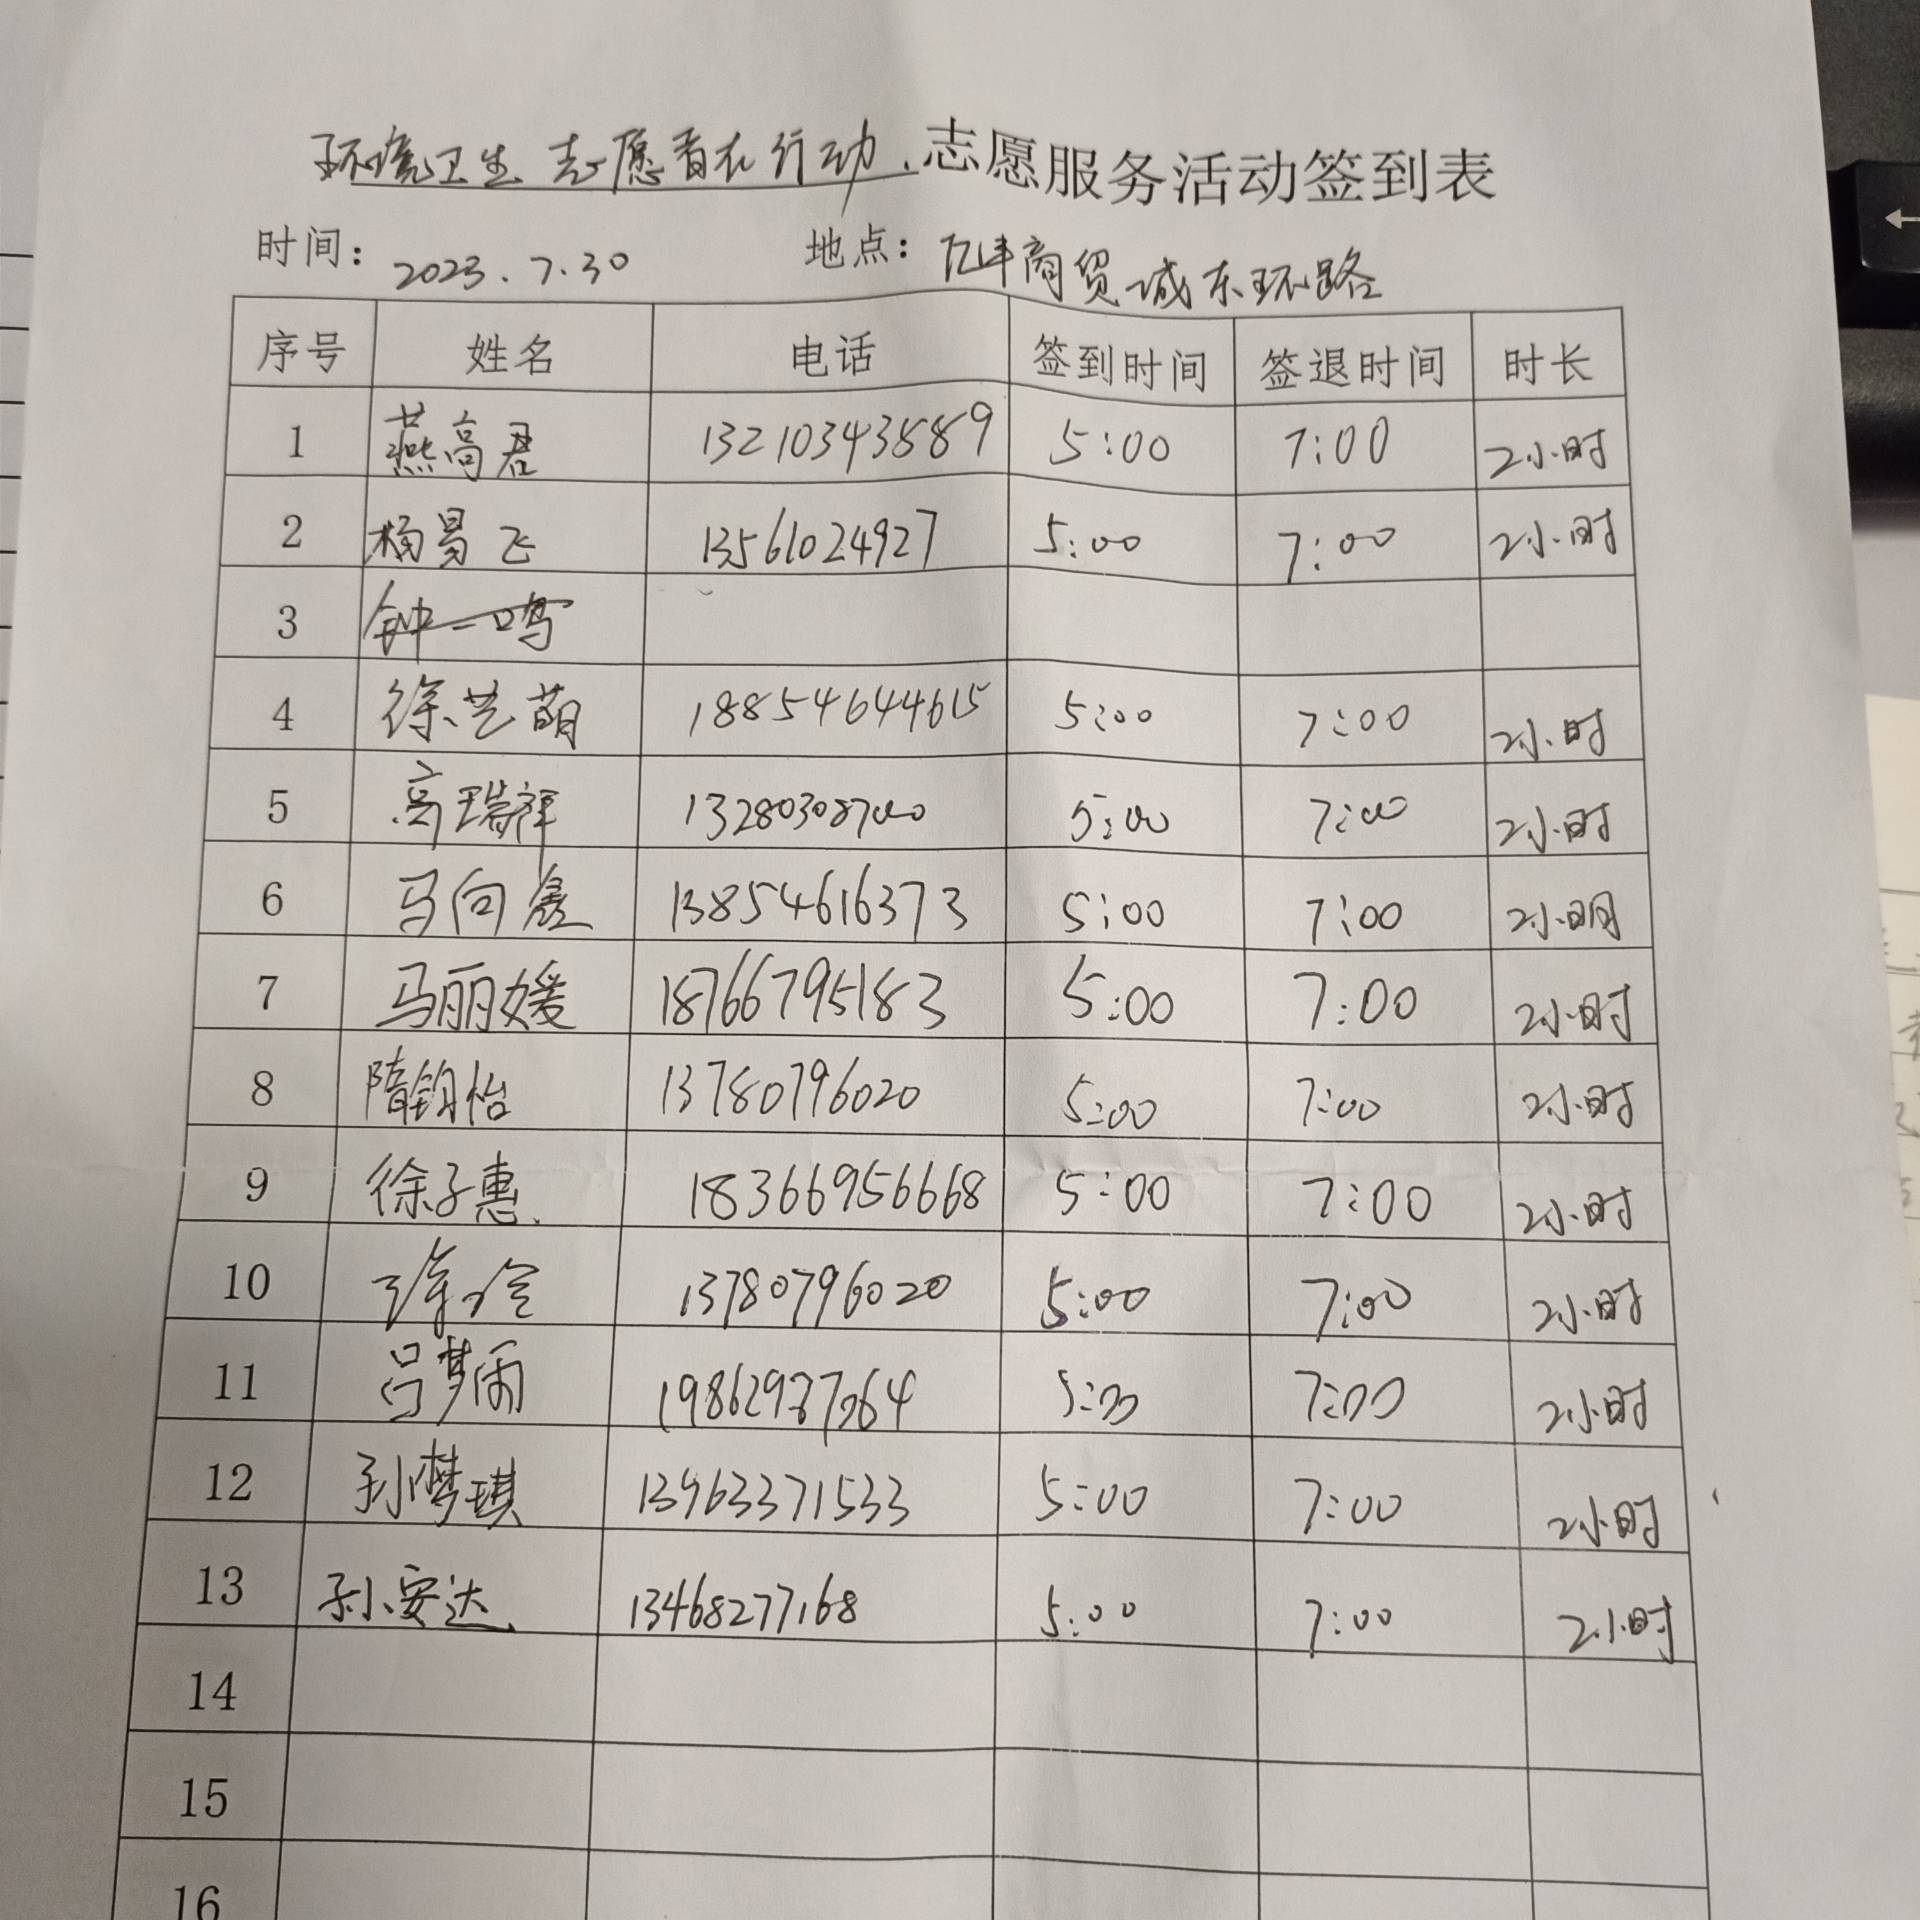 环境卫生志愿者在行动. 志愿服务活动签到表
时间: 2023.7.30 地点: 亿丰商贸城东环路
序号 姓名 电话 签到时间 签退时间 时长
1 燕高君 13210343889 5:00 7:00 2小时
2 杨易飞 13561024927 5:00 7:00 2小时
3 钟一鸣
4 徐艺萌 18854644615 5:00 7:00 2小时
5 高瑞祥 13280308700 5:00 7:00 2小时
6 马向鑫 13854616373 5:00 7:00 2小时
7 马丽媛 18766795183 5:00 7:00 2小时
8 隋钧怡 13780796020 5:00 7:00 2小时
9 徐子惠 18366956668 5:00 7:00 2小时
10 13780796020 5:00 7:00 2小时
11 吕梦雨 5:00 7:00 2小时
12 孙梦琪 13963371533 5:00 7:00 2小时
13 孙安达 13468277168 5:00 7:00 2小时
14
15
16